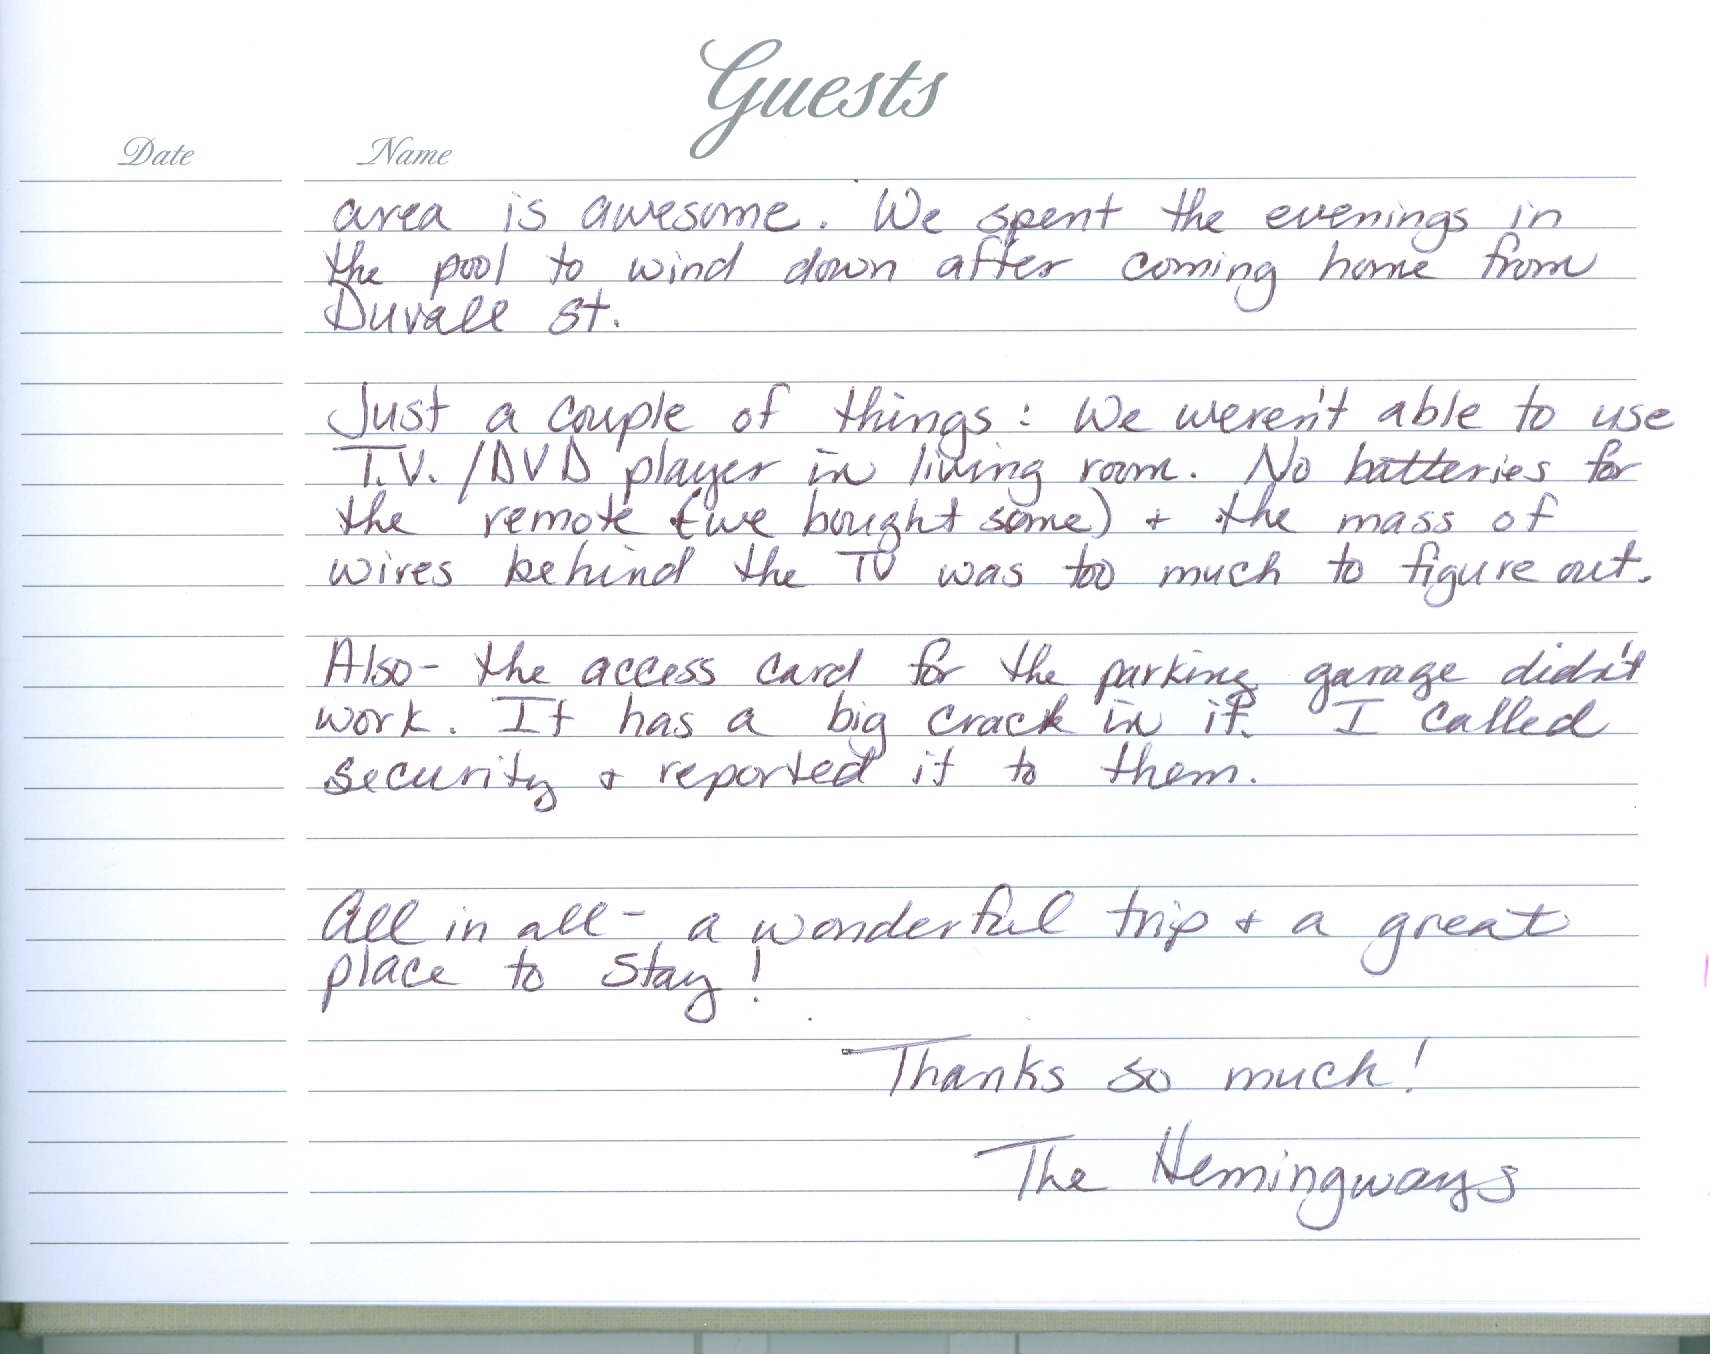 Guests
Date Name
area is awesome. We spent the evenings in
the pool to wind down after coming home from
Duvall St.
Just a couple of things: We weren't able to use
T.V. /DVD player in living room. No batteries for
the remote (we bought some) + the mass of
wires behind the TV was too much to figure out.
Also- the access card for the parking garage didn't
work. It has a big crack in it. I called
security + reported it to them.
All in all - a wonderful trip + a great
place to stay!
Thanks so much!
The Hemingways